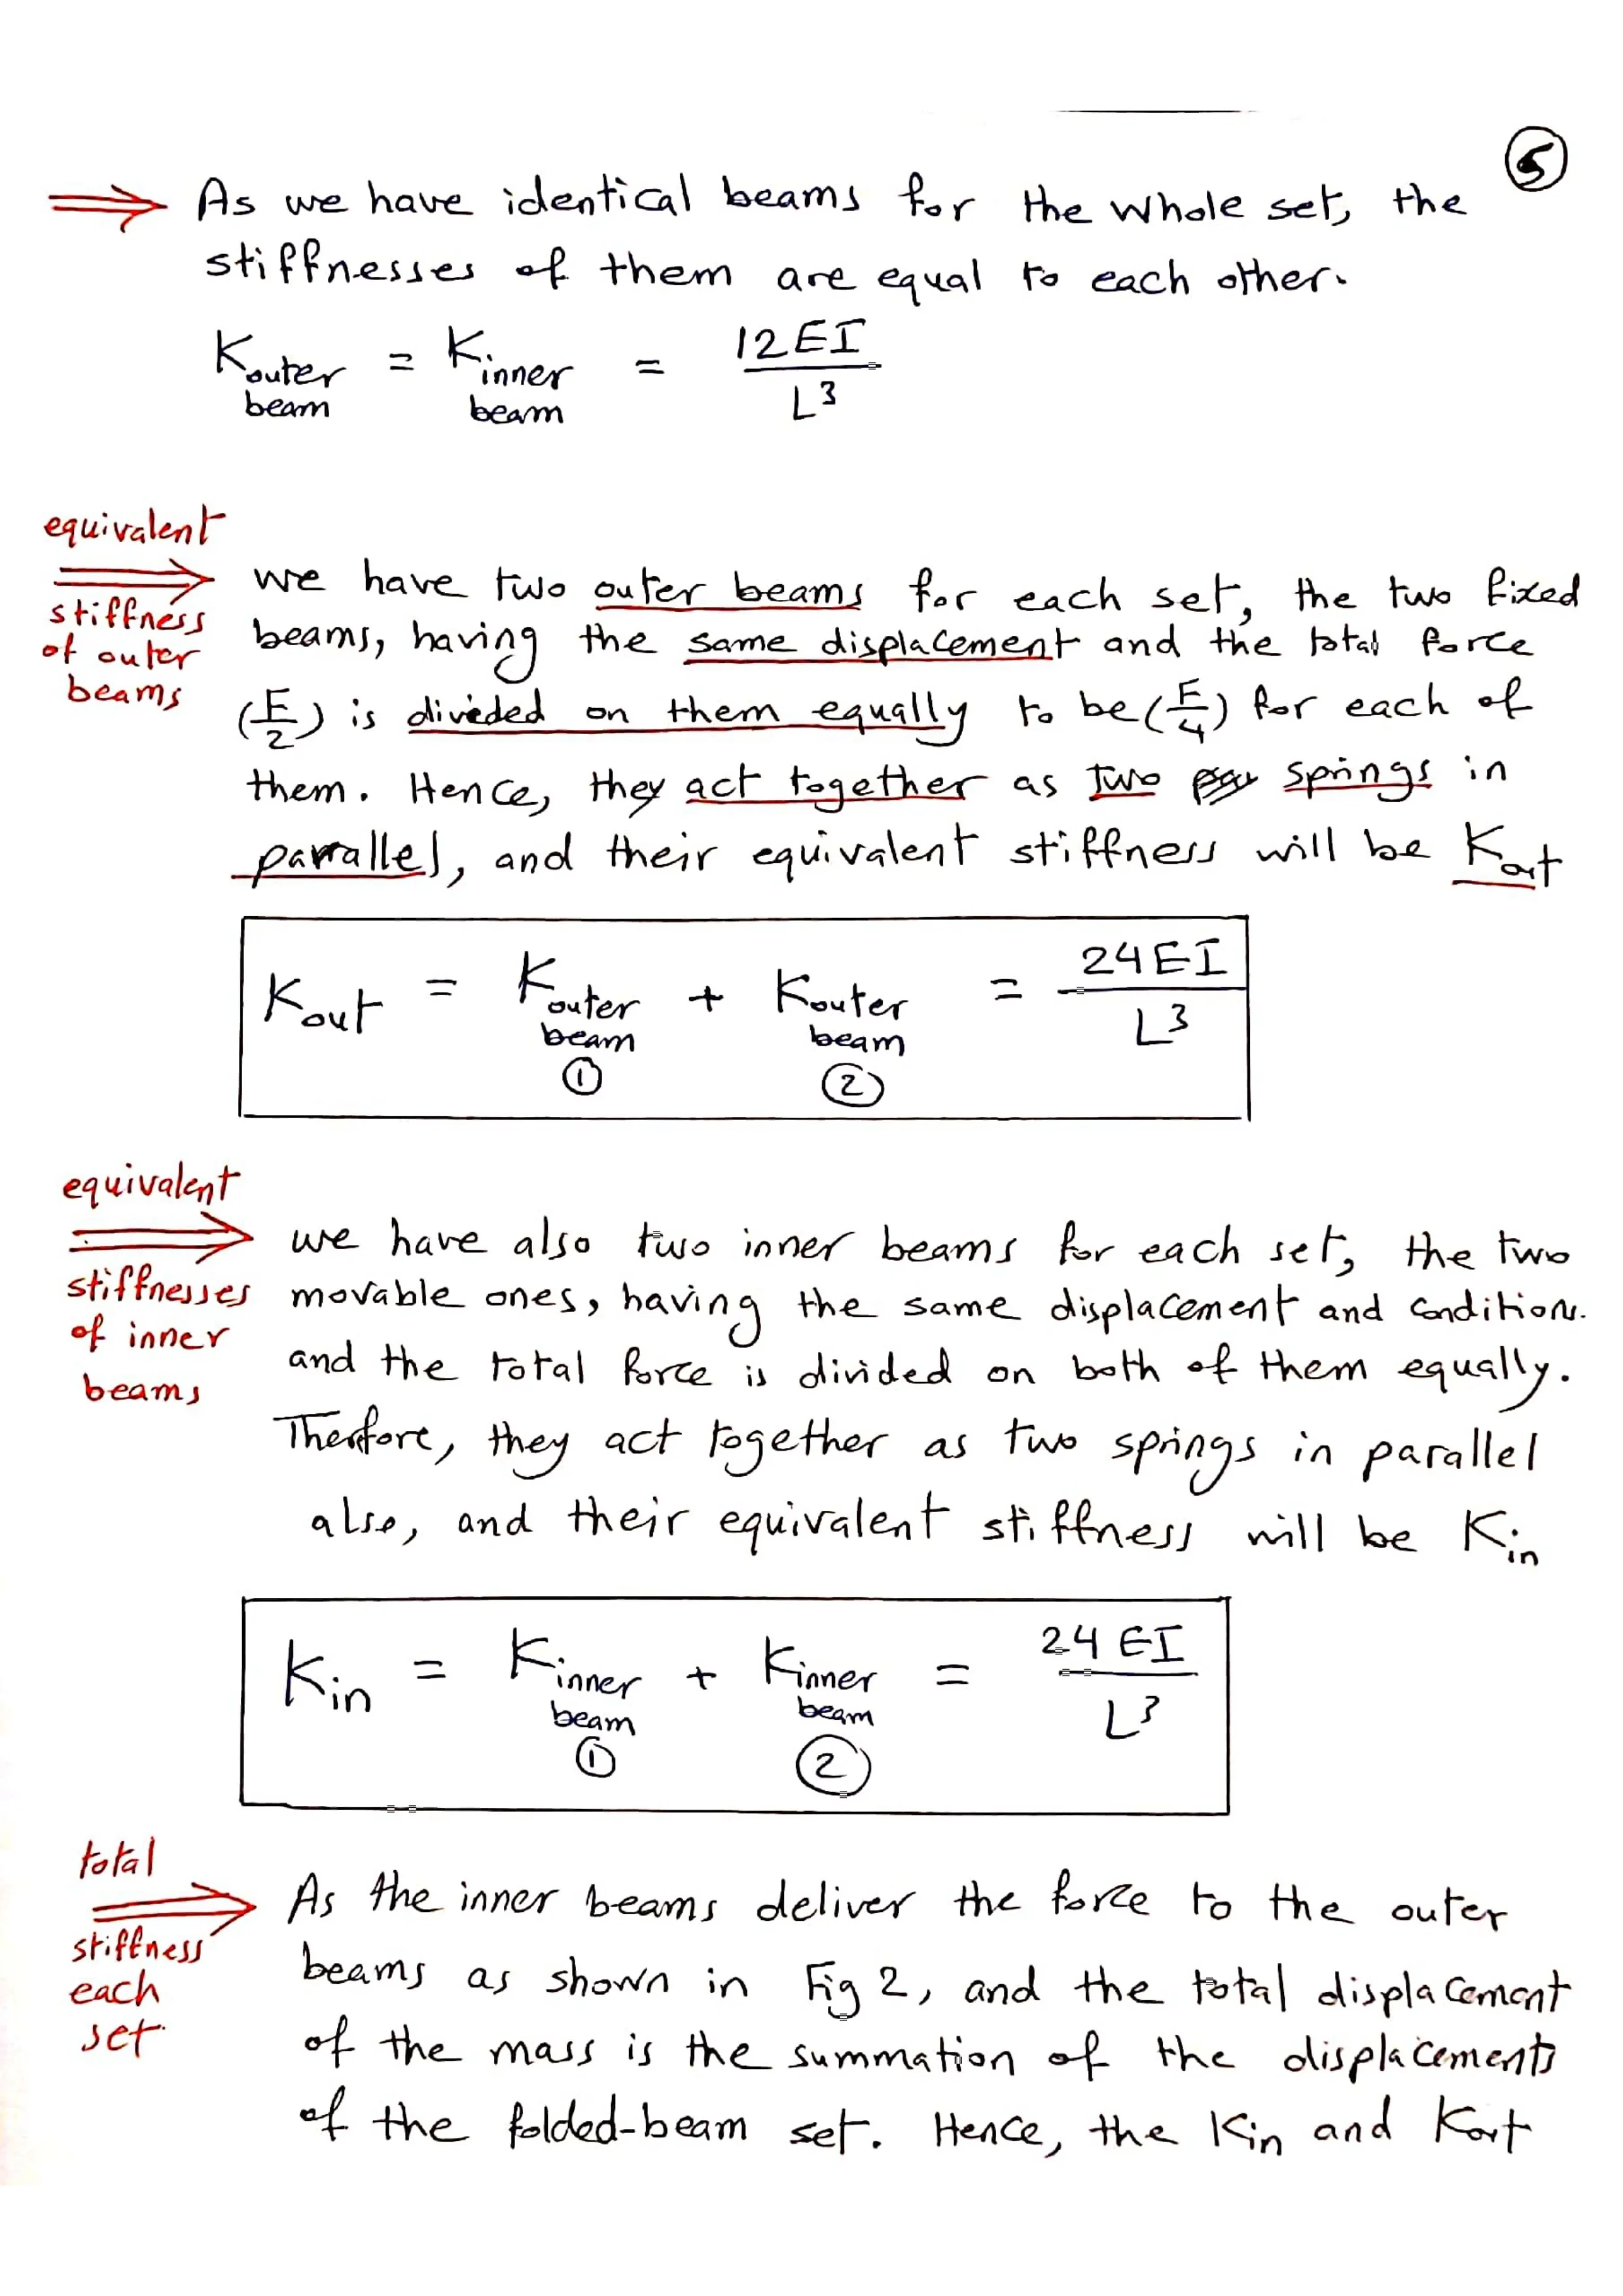 5
⇒ As we have identical beams for the whole set, the
stiffnesses of them are equal to each other.
K outer beam = K inner beam = 12EI / L³
equivalent
⇒ we have two outer beams for each set, the two fixed
stiffness
of outer
beams
beams, having the same displacement and the total force
(F/2) is divided on them equally to be (F/4) for each of
them. Hence, they act together as two springs in
parrallel, and their equivalent stiffness will be Kout
Kout = K outer beam ① + K outer beam ② = 24EI / L³
equivalent
⇒ we have also two inner beams for each set, the two
stiffnesses
of inner
beams
movable ones, having the same displacement and conditions.
and the total force is divided on both of them equally.
Therefore, they act together as two springs in parallel
also, and their equivalent stiffness will be Kin
Kin = K inner beam ① + K inner beam ② = 24 EI / L³
total
⇒ As the inner beams deliver the force to the outer
stiffness
each
set.
beams as shown in Fig 2, and the total displacement
of the mass is the summation of the displacements
of the folded-beam set. Hence, the Kin and Kout